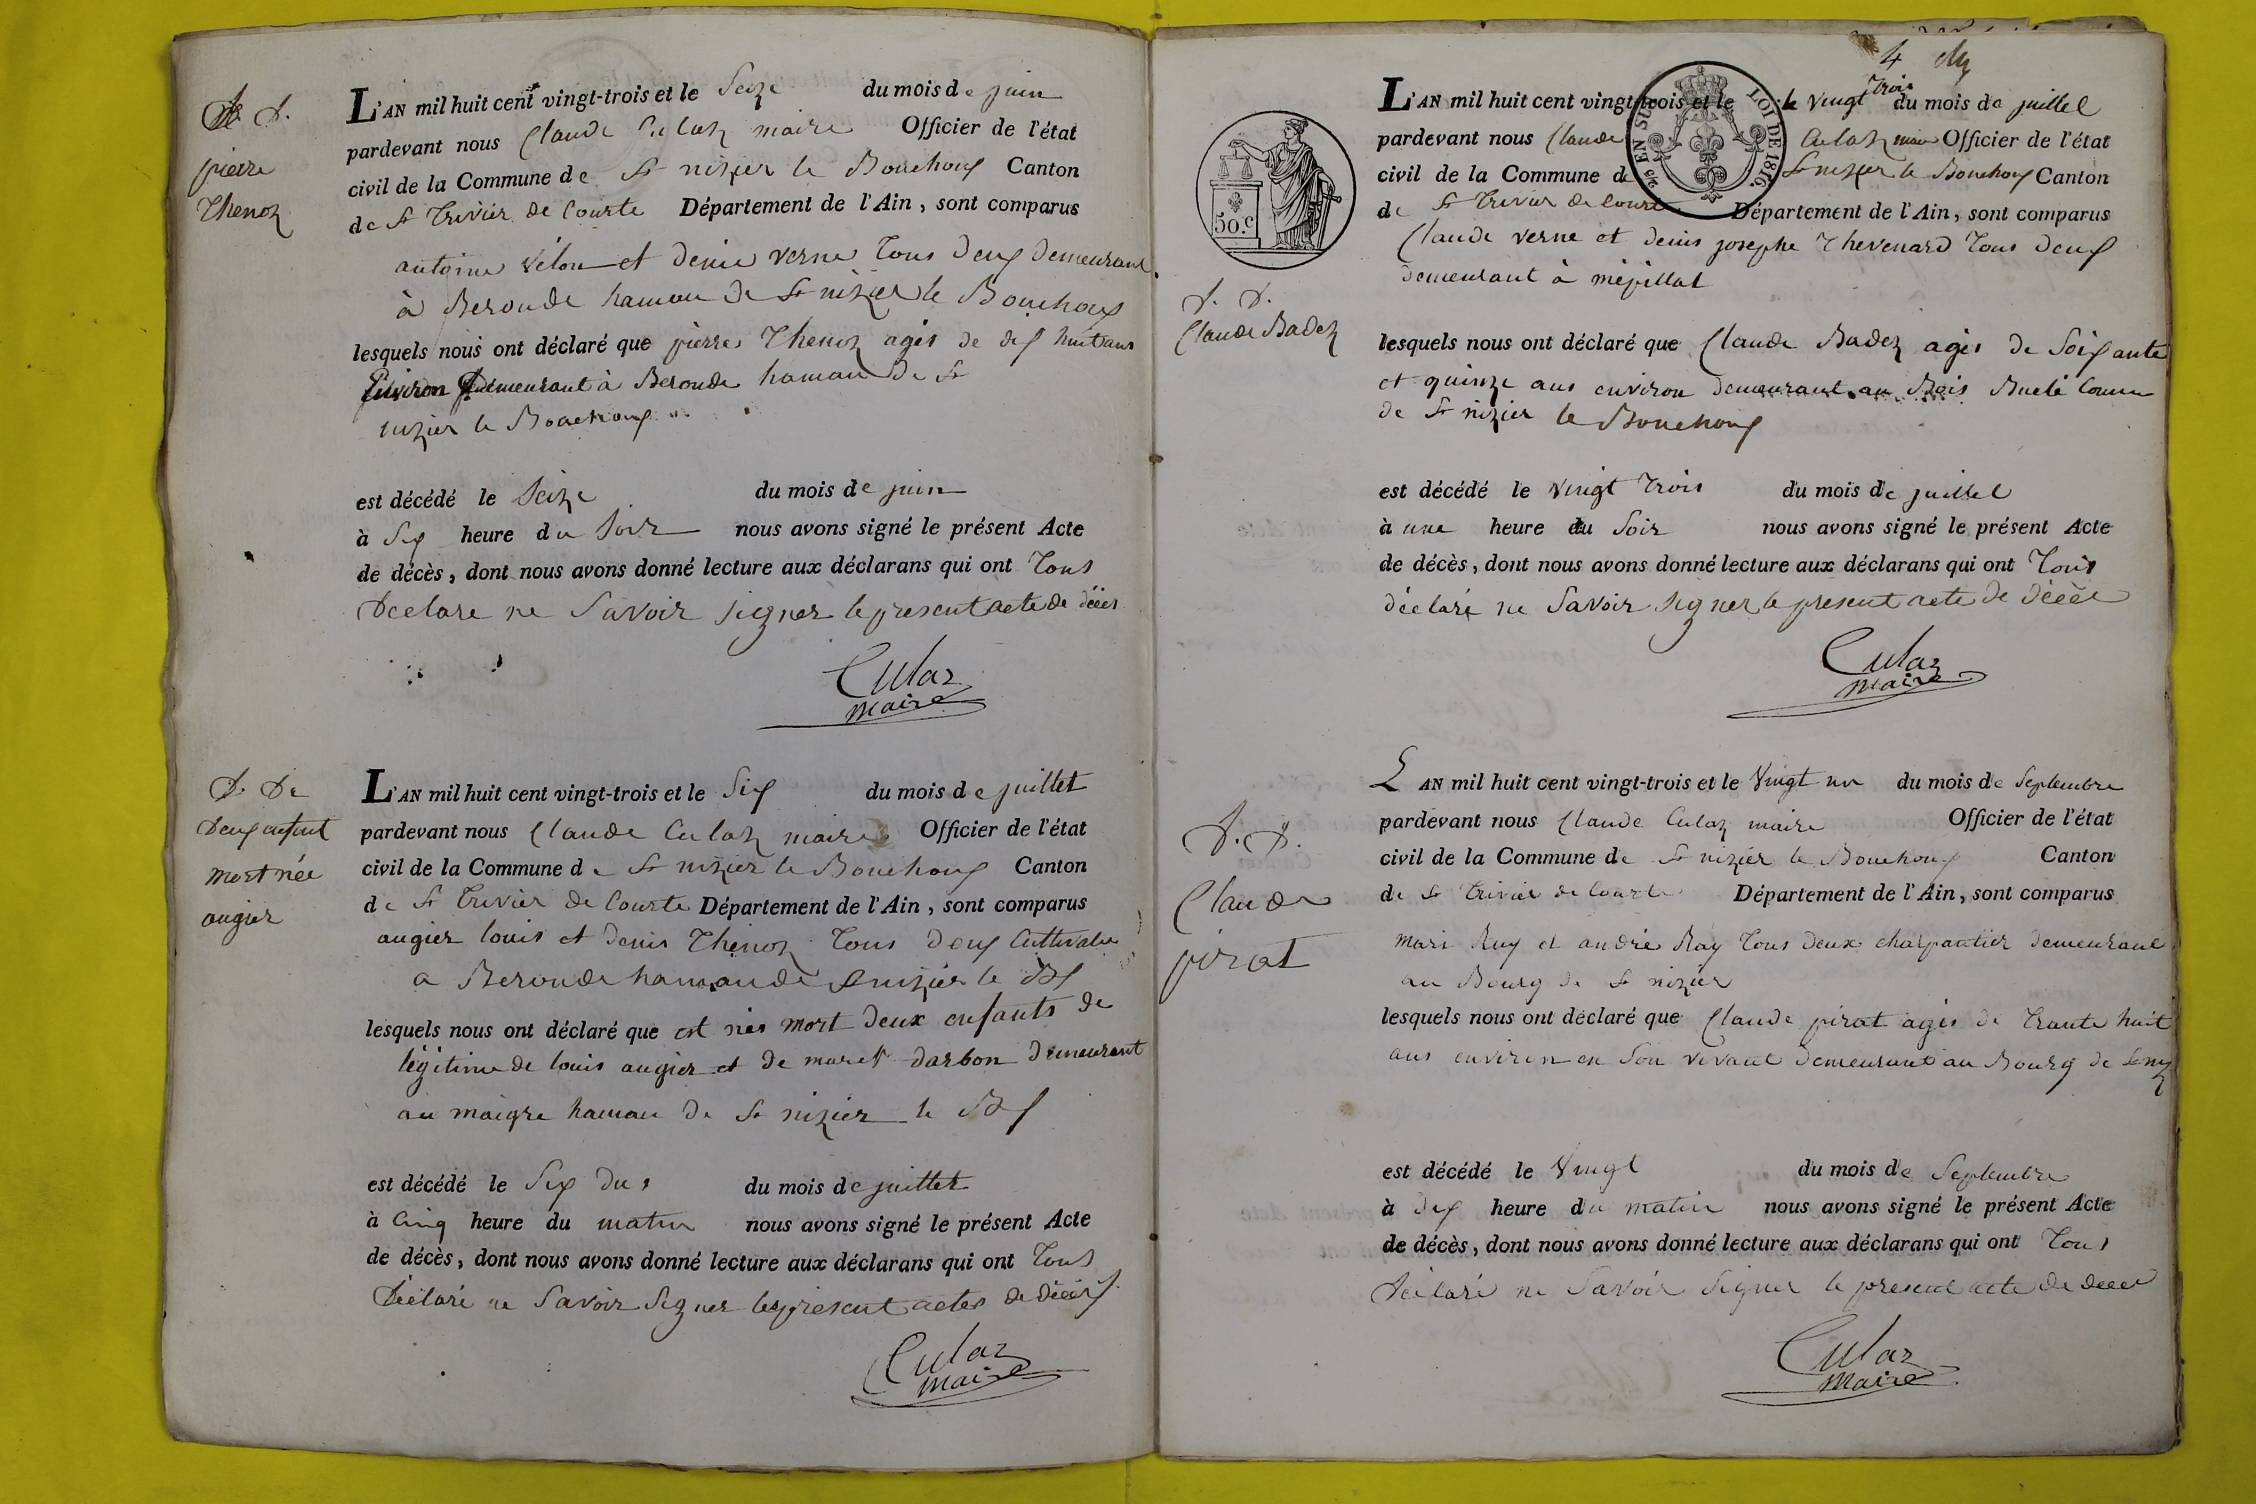 D. D.
pierre
Thenoz
L'AN mil huit cent vingt-trois et le Seize du mois de juin
pardevant nous Claude Culaz maire Officier de l'état
civil de la Commune de St nizier le Bouchoux Canton
de St Trivier de Courte Département de l'Ain, sont comparus
antoine vélon et denie verne tous deux demeurant
à Beronde hamau de St nizier le Bouchoux
lesquels nous ont déclaré que pierre Thenoz agés de dix huit ans
Environ demeurant à Beronde hamau de St
nizier le Bouchoux
est décédé le Seize du mois de juin
à Six heure du Soir nous avons signé le présent Acte
de décès, dont nous avons donné lecture aux déclarans qui ont Tous
Declare ne Savoir signer le present acte de décès
Culaz
maire
D. De
Deux enfant
mort née
augier
L'AN mil huit cent vingt-trois et le Six du mois de juillet
pardevant nous Claude Culaz maire Officier de l'état
civil de la Commune de St nizier le Bouchoux Canton
de St Trivier de Courte Département de l'Ain, sont comparus
augier louis et denis Thenoz Tous deux Cultivateur
a Beronde hamau de St nizier le Bx
lesquels nous ont déclaré que est nés mort deux enfants de
légitime de louis augier et de marie darbon demeurant
au maigre hamau de St nizier le Bx
est décédé le Six dus du mois de juillet
à Cinq heure du matin nous avons signé le présent Acte
de décès, dont nous avons donné lecture aux déclarans qui ont Tous
Déclaré ne Savoir Signer les présent actes de décès
Culaz
maire
4
50.c
LOI DE 1816
EN SUS
D. D.
Claude Badez
L'AN mil huit cent vingt-trois et le le vingt trois du mois de juillet
pardevant nous Claude Culaz maire Officier de l'état
civil de la Commune de St nizier le Bouchoux Canton
de St Trivier de Courte Département de l'Ain, sont comparus
Claude verne et denis josephe Thevenard Tous deux
demeurant à mépillat
lesquels nous ont déclaré que Claude Badez agés de Soixante
et quinze ans environ demeurant au Bois Buelé Comm
de St nizier le Bouchoux
est décédé le vingt trois du mois de juillet
à une heure du Soir nous avons signé le présent Acte
de décès, dont nous avons donné lecture aux déclarans qui ont Tous
déclaré ne Savoir signer le present acte de décès
Culaz
maire
D. D.
Claude
pirat
L'AN mil huit cent vingt-trois et le Vingt un du mois de Septembre
pardevant nous Claude Culaz maire Officier de l'état
civil de la Commune de St nizier le Bouchoux Canton
de St Trivier de Courte Département de l'Ain, sont comparus
mari Ruy et andré Ray Tous deux charpantier demeurant
au Bourg de St nizier
lesquels nous ont déclaré que Claude pirat agés de Trante huit
ans environ en Son vivant demeurant au Bourg de St niz
est décédé le Vingt du mois de Septembre
à dix heure du matin nous avons signé le présent Acte
de décès, dont nous avons donné lecture aux déclarans qui ont Tous
Déclaré ne Savoir Signer le present acte de décès
Culaz
maire